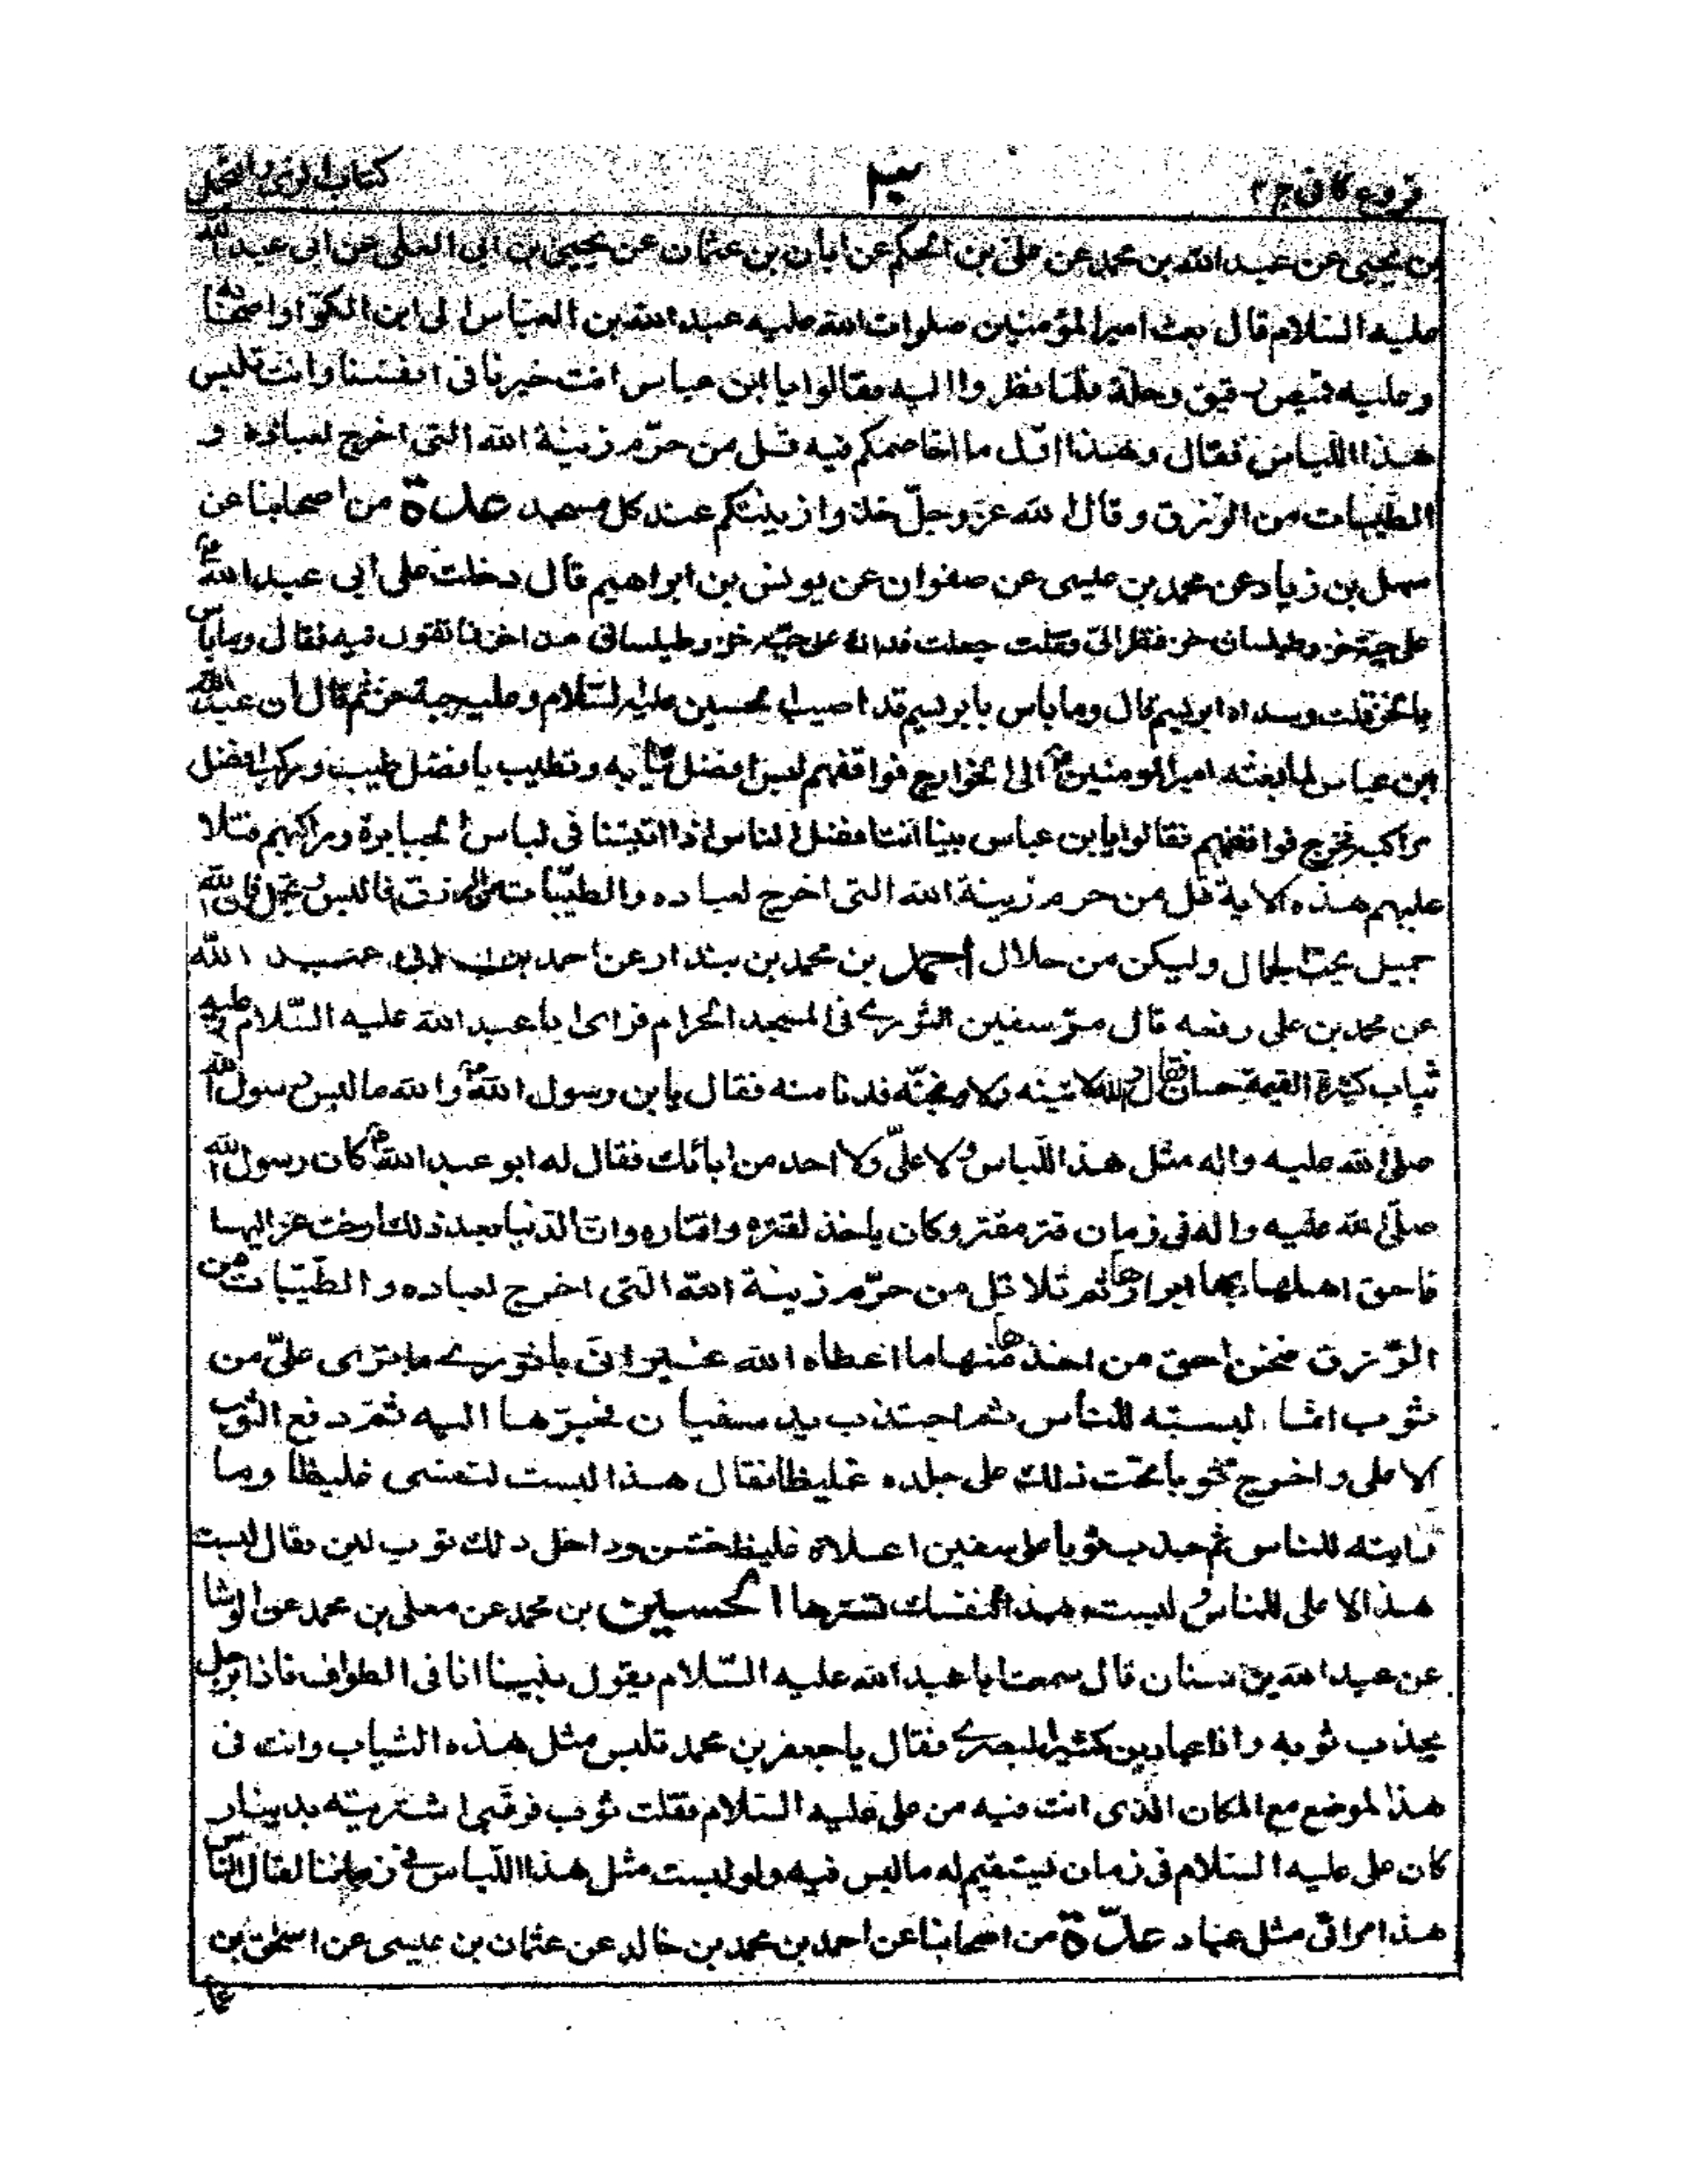 فروع كافى ج ٢ كتاب الزى والتجمل
بن يحيى عن عبد الله بن محمد عن على بن الحكم عن ابان بن عثمان عن يحيى بن ابى العلى عن ابى عبد الله
عليه السلام قال بعث امير المؤمنين صلوات الله عليه عبد الله بن العباس الى ابن الكوّا واصحابه
وعليه قميص رقيق وحلة فلما نظروا اليه فقالوا يا ابن عباس انت خيرنا فى انفسنا وانت تلبس
هذا اللباس فقال وهذا اوّل ما اخاصمكم فيه قل من حرّم زينة الله التى اخرج لعباده و
الطيبات من الرزق وقال الله عزوجلّ خذوا زينتكم عند كل مسجد عدة من اصحابنا عن
سهل بن زياد عن محمد بن عيسى عن صفوان عن يونس بن ابراهيم قال دخلت على ابى عبد الله ع
على جبّة خز وطيلسان خز فنظر الىّ فقلت جعلت فداك على جبّة خز وطيلسانى هذا خز فما تقول فيه فقال وما باس
بالخز قلت وسداه ابريسم قال وما باس بابريسم قد اصيب الحسين عليه السّلام وعليه جبة خز ثم قال ان عبد الله
ابن عباس لما بعثه امير المومنين ع الى الخوارج فواقفهم لبس افضل ثيابه وتطيب بافضل طيبه وركب افضل
مراكبه فخرج فواقفهم فقالوا يا بن عباس بينا انت افضل الناس اذا اتيتنا فى لباس الجبابرة ومراكبهم فتلا
عليهم هذه الاية قل من حرم زينة الله التى اخرج لعباده والطيّبات من الرزق فالبس وتجمل فان الله
جميل يحبّ الجمال وليكن من حلال احمد بن محمد بن بندار عن احمد بن ابى عبد الله
عن محمد بن على رفعه قال مرّ سفين الثورى فى المسجد الحرام فراى ابا عبد الله عليه السّلام وعليه
ثياب كثيرة القيمة حسان فقال والله لاتينه ولاوبخنّه فدنا منه فقال يا بن رسول الله ص والله ما لبس رسول الله
صلى الله عليه واله مثل هذا اللّباس ولا علىّ ولا احد من ابائك فقال له ابو عبد الله ع كان رسول الله
صلّى الله عليه واله فى زمان قتر مقتر وكان ياخذ لقتره واقتاره وان الدنيا بعد ذلك ارخت عزاليها
فاحق اهلها بها ابرارها ثم تلا قل من حرّم زينة الله الّتى اخرج لعباده والطّيّبات من
الرّزق فنحن احق من اخذ منها ما اعطاه الله غير انى يا ثورى ما ترى علىّ من
ثوب انما لبسته للنأس ثم اجتذب يد سفيان فجرّها اليه ثمّ رفع الثوب
الاعلى واخرج ثوبا تحت ذلك على جلده غليظا فقال هذا لبست لنفسى غليظا وما
رايته للناس ثم جذب ثوبا على سفين اعلاه غليظ خشن وداخل ذلك ثوب لين فقال لبست
هذا الاعلى للناس ولبست هذا لنفسك تسترها الحسين بن محمد عن معلى بن محمد عن الوشا
عن عبد الله بن سنان قال سمعت ابا عبد الله عليه السّلام يقول بينا انا فى الطواف فاذا برجل
يجذب ثوبه واذا عباد بن كثير البصرى فقال يا جعفر بن محمد تلبس مثل هذه الثياب وانت فى
هذا الموضع مع المكان الذى انت فيه من على عليه السلام فقلت ثوب فرقبى اشتريته بدينار
كان على عليه السلام فى زمان يستقيم له ما لبس فيه ولو لبست مثل هذا اللّباس فى زماننا لقال النّاس
هذا مرائى مثل عباد عدّة من اصحابنا عن احمد بن محمد بن خالد عن عثمان بن عيسى عن اسحق بن